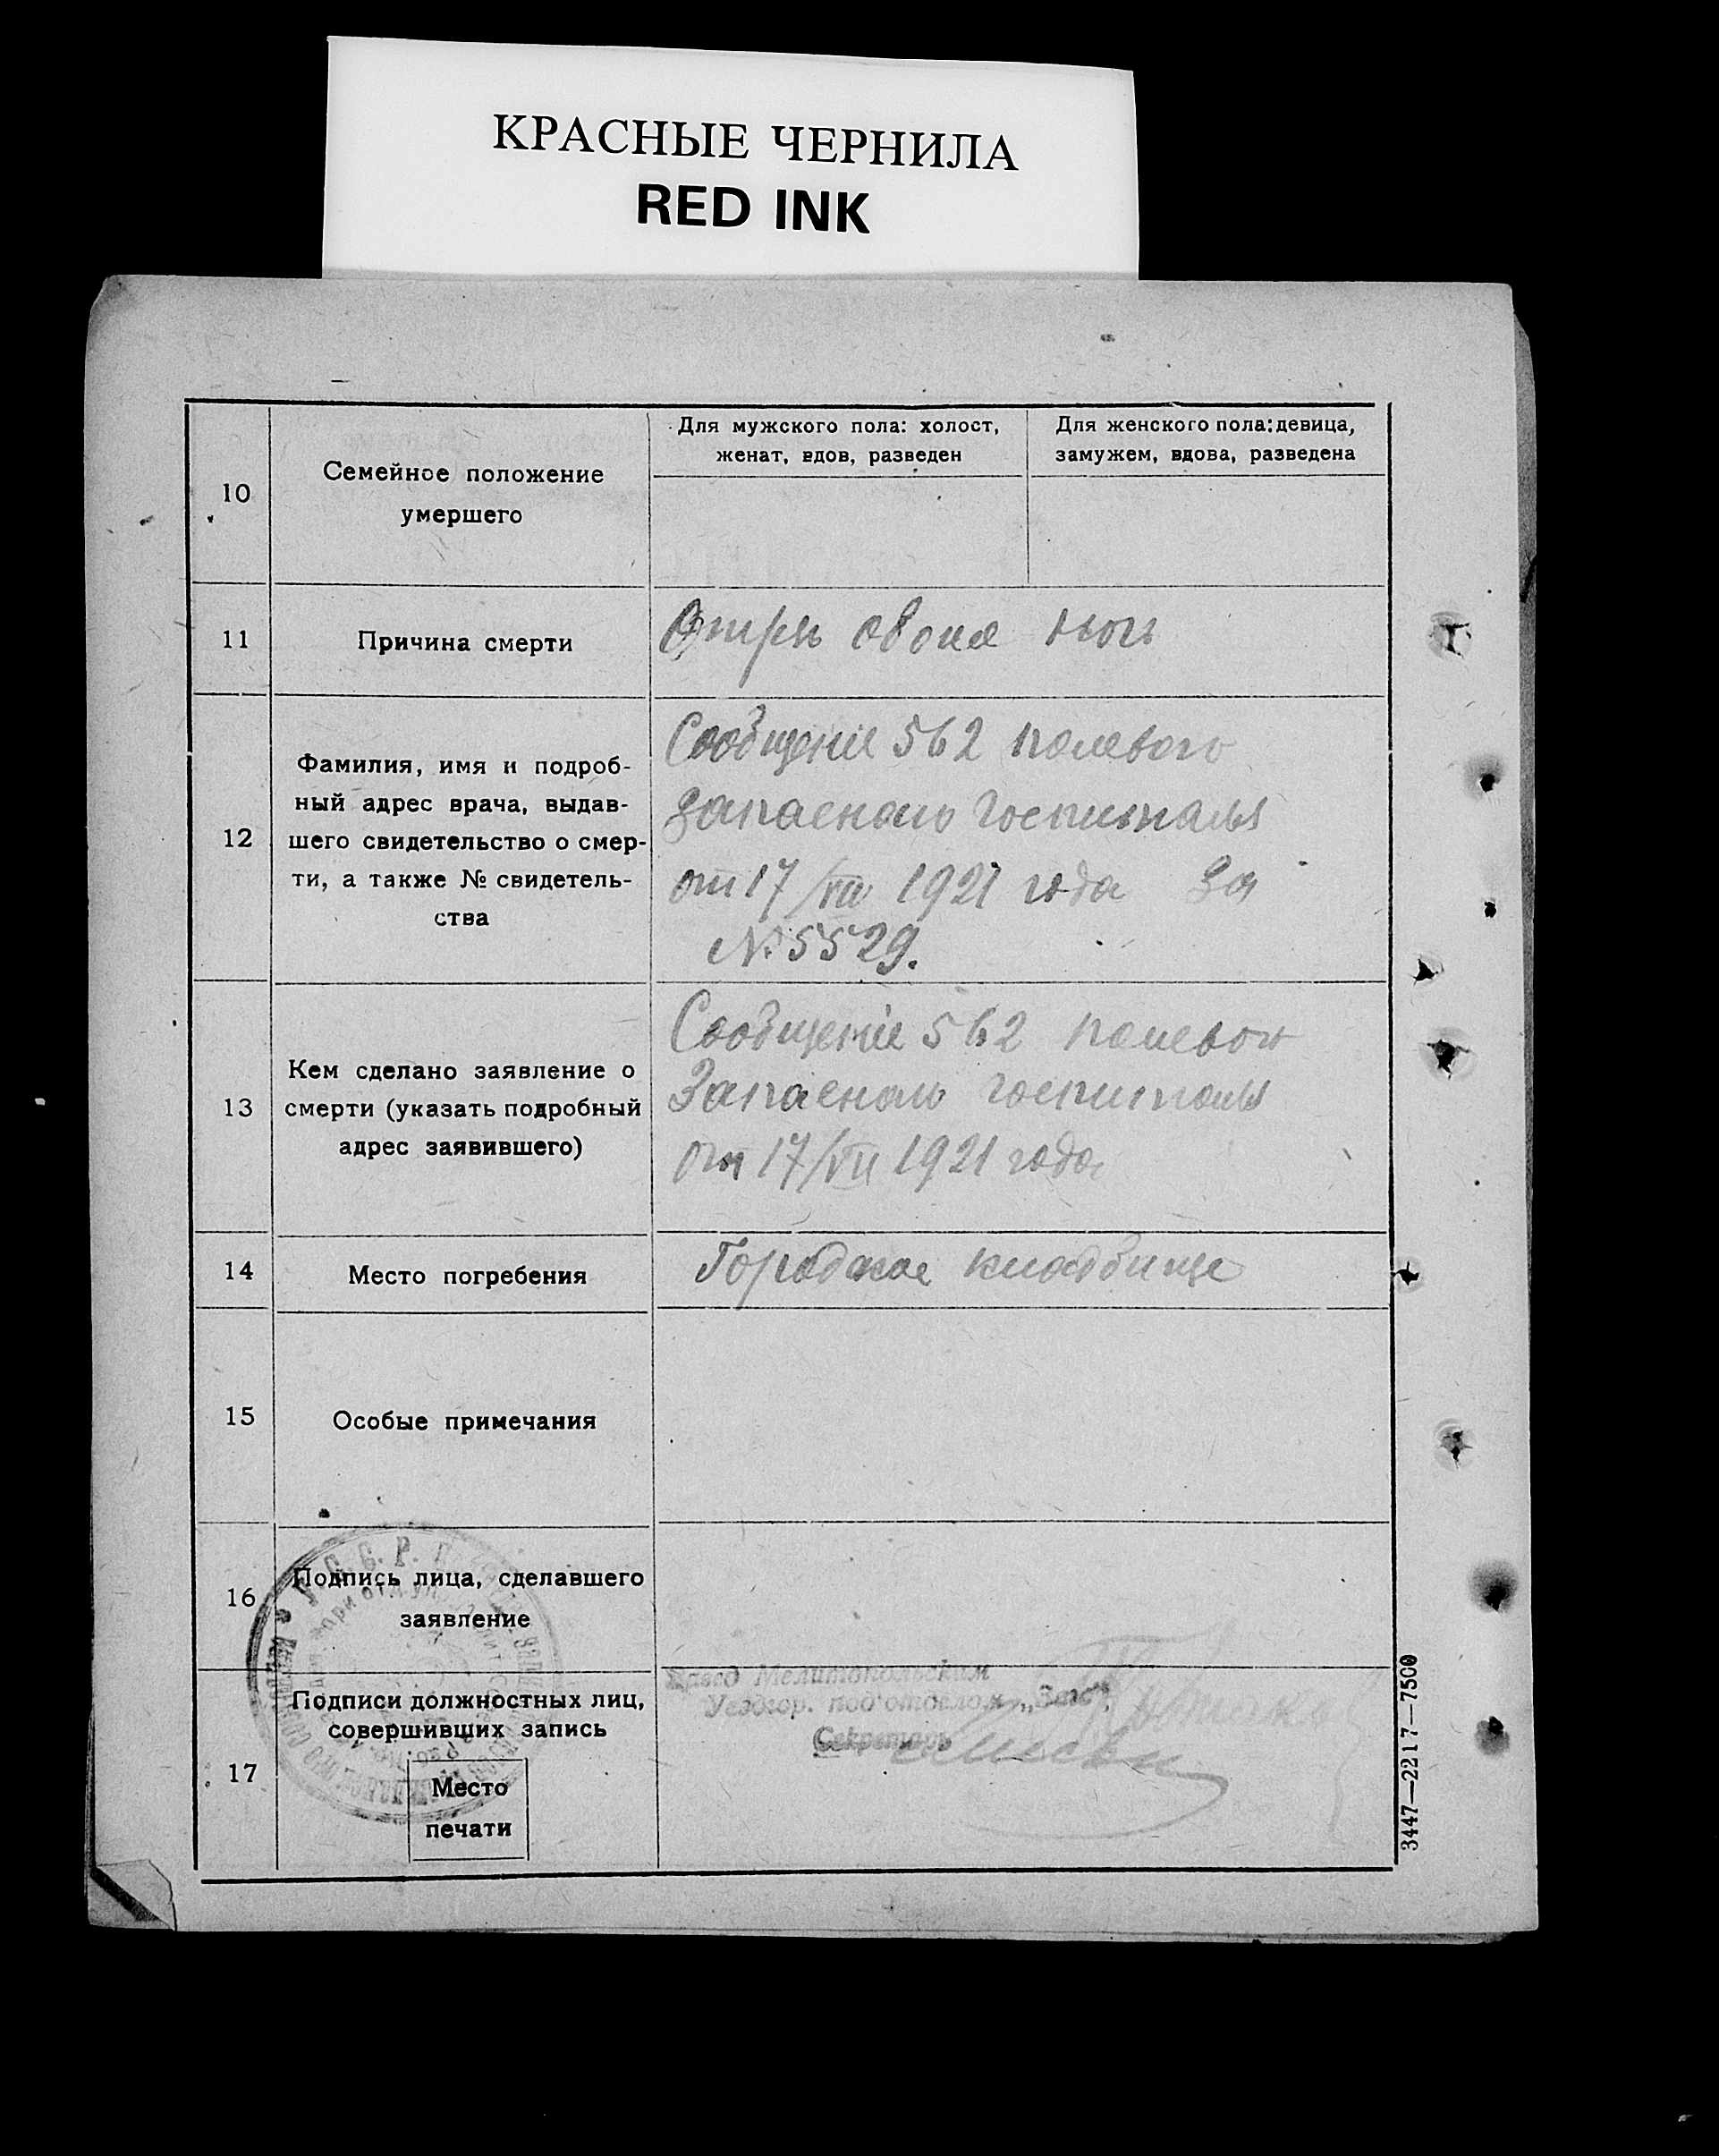 КРАСНЫЕ ЧЕРНИЛА
RED INK
10
Семейное положение
умершего
Для мужского пола: холост,
женат, вдов, разведен
Для женского пола: девица,
замужем, вдова, разведена
11
Причина смерти
ног
12
Фамилия, имя и подроб-
ный адрес врача, выдав-
шего свидетельство о смер-
ти, а также № свидетель-
ства
Сообщение 562 полевого
запасного госпиталя
от 17/VII 1921 года За
№ 5529.
13
Кем сделано заявление о
смерти (указать подробный
адрес заявившего)
Сообщение 562 полевого
Запасного госпиталя
от 17/VII 1921 года
14
Место погребения
Городское кладбище
15
Особые примечания
16
Подпись лица, сделавшего
заявление
17
Подписи должностных лиц,
совершивших запись
Место
печати
У.С.С.Р.
Завед Мелитопольским
Уездгор. под'отделом „Загс"
Секретарь
3447—2217—7500